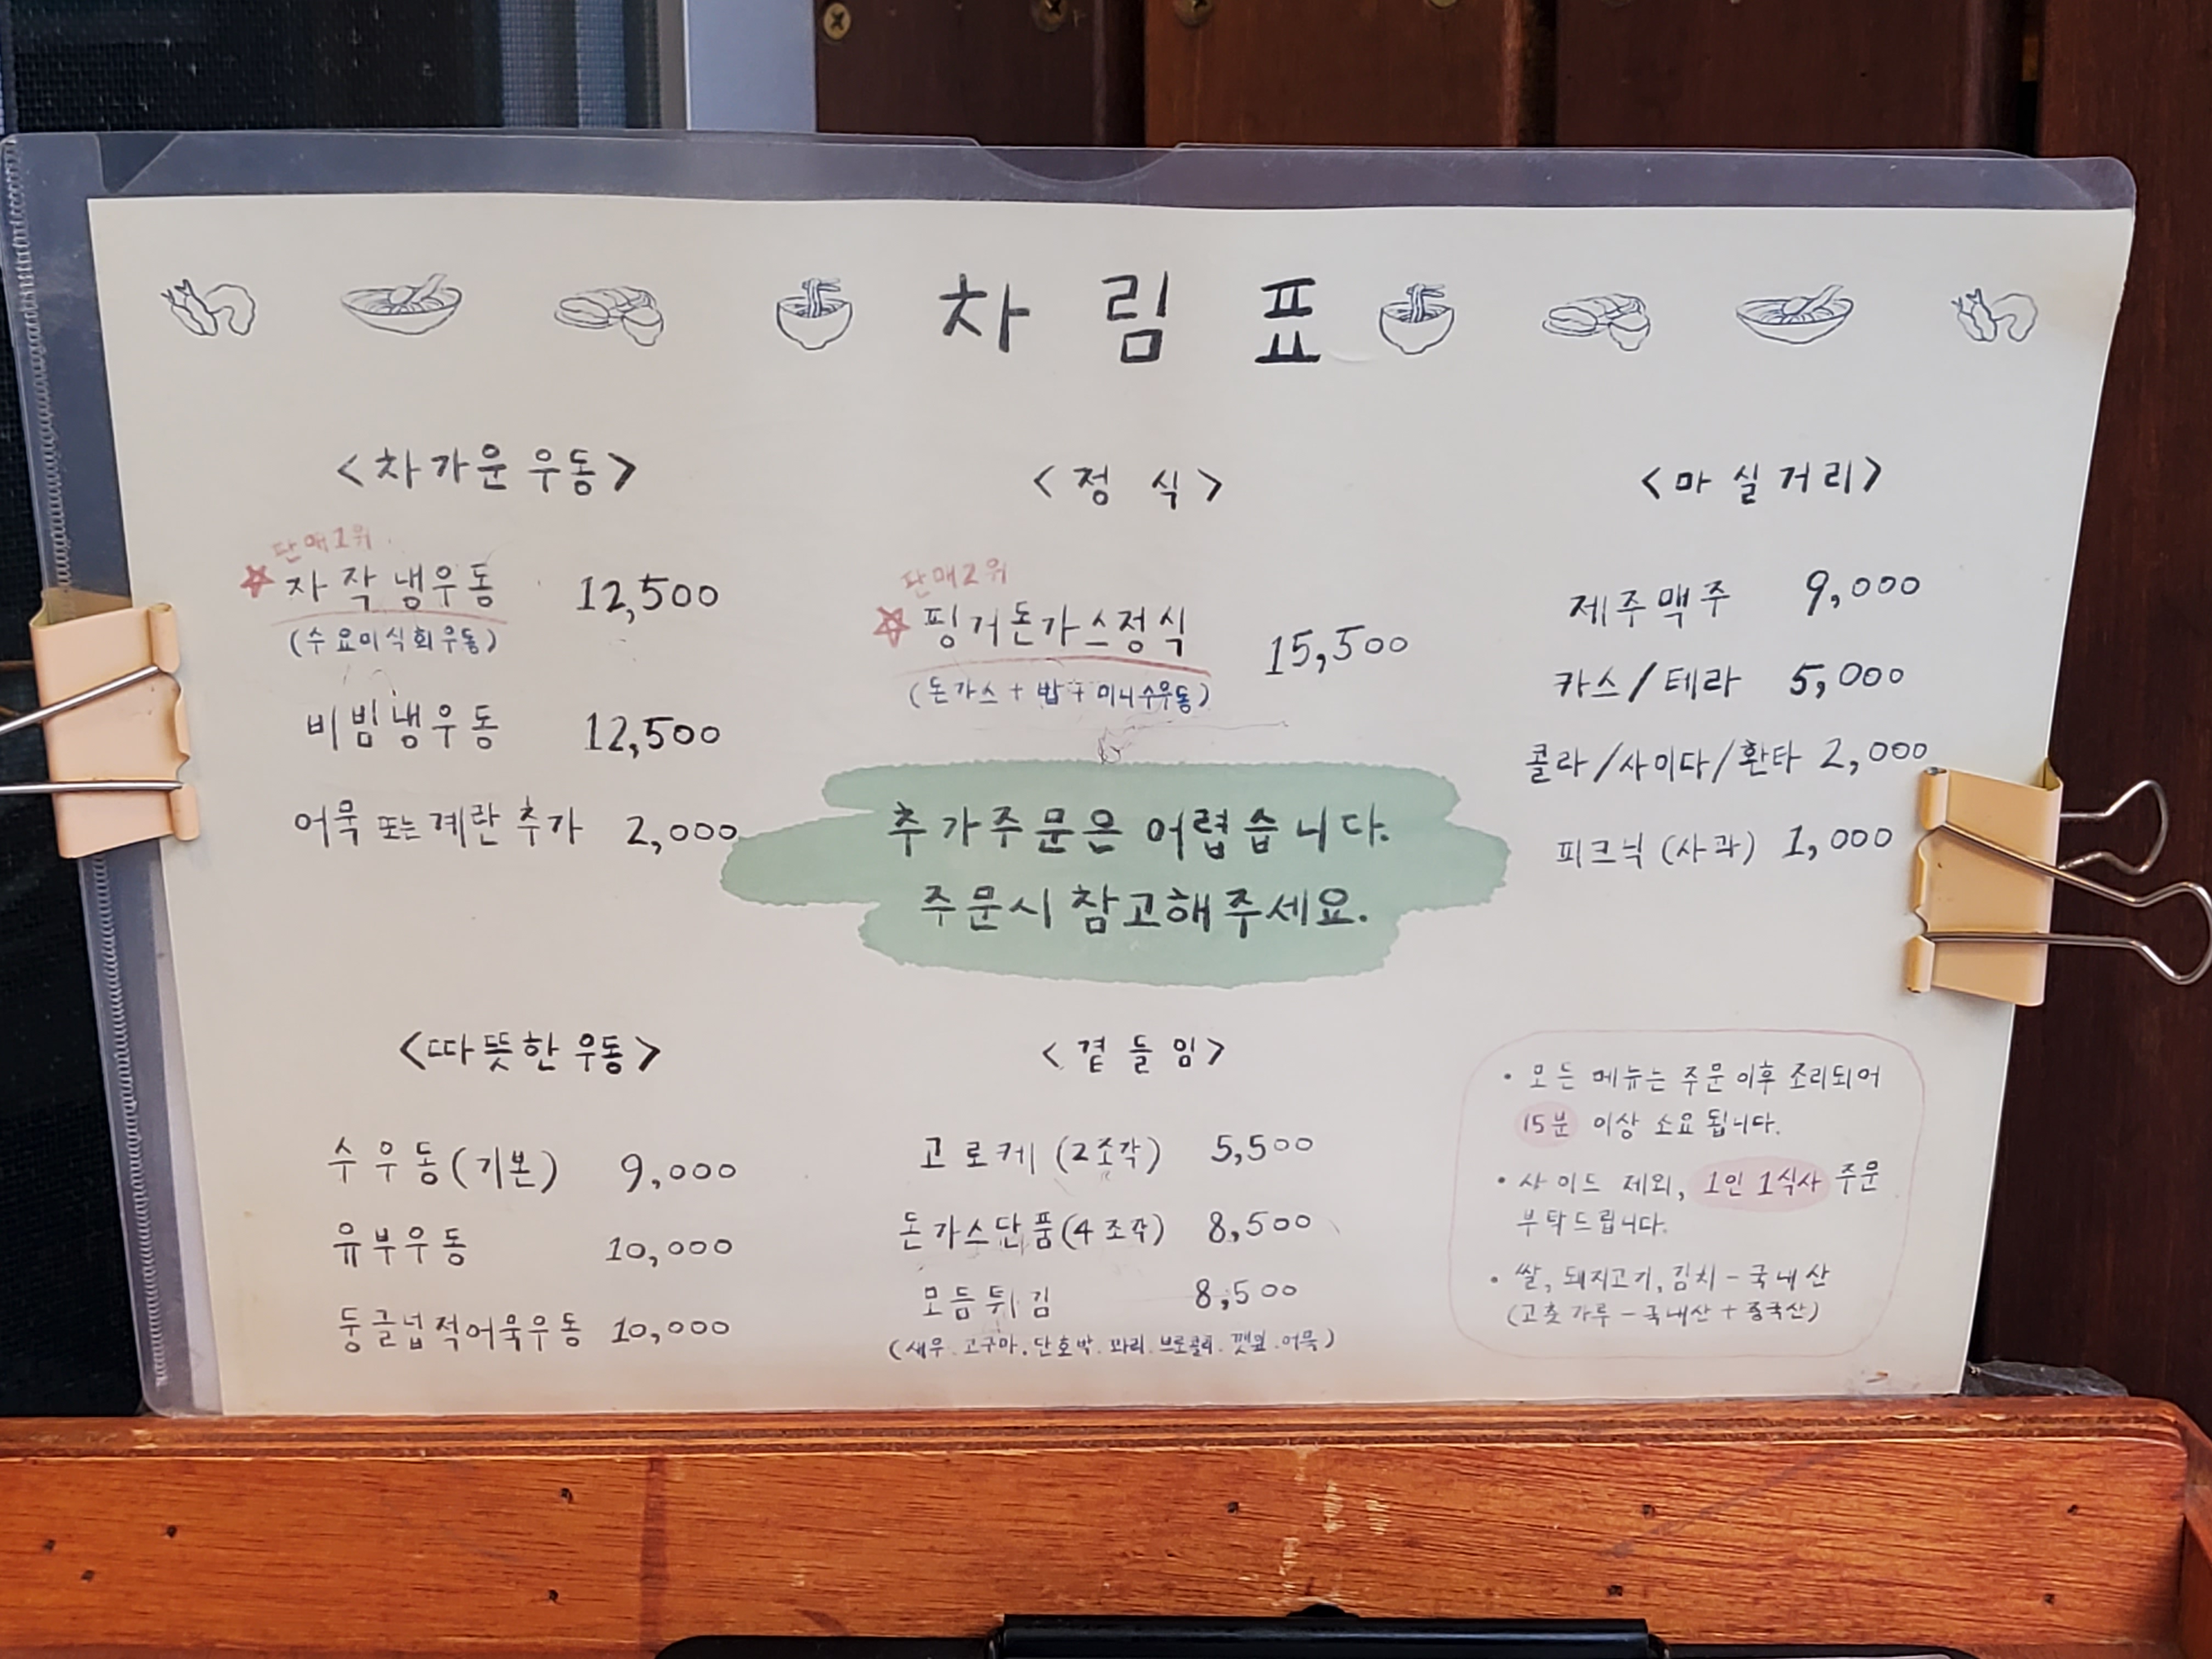 차림표
<차가운 우동>
판매1위
자작냉우동 12,500
(수요미식회우동)
비빔냉우동 12,500
어묵 또는 계란 추가 2,000
<정식>
판매2위
핑거돈가스정식 15,500
(돈가스 + 밥 + 미니수우동)
<마실거리>
제주맥주 9,000
카스/테라 5,000
콜라/사이다/환타 2,000
피크닉 (사과) 1,000
추가주문은 어렵습니다.
주문시 참고해주세요.
<따뜻한 우동>
수우동(기본) 9,000
유부우동 10,000
둥글넙적어묵우동 10,000
<곁들임>
고로케 (2조각) 5,500
돈가스단품(4조각) 8,500
모듬튀김 8,500
(새우.고구마.단호박.꽈리.브로콜리.깻잎.어묵)
• 모든 메뉴는 주문 이후 조리되어
15분 이상 소요 됩니다.
• 사이드 제외, 1인 1식사 주문
부탁드립니다.
• 쌀, 돼지고기, 김치 - 국내산
(고춧가루 - 국내산 + 중국산)